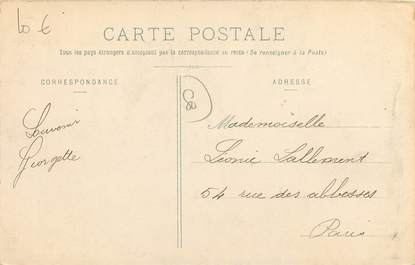 10 €
CARTE POSTALE
Tous les pays étrangers n'acceptent pas la correspondance au recto (Se renseigner à la Poste)
CORRESPONDANCE
ADRESSE
80
Mademoiselle
Souvenir
Léonie Lallement
Georgette
54 rue des abbesses
Paris